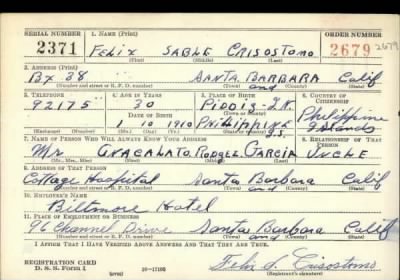 SERIAL NUMBER 1. NAME (Print) ORDER NUMBER
2371 FELIX SABLE CRISOSTOMO 2679 2679
(First) (Middle) (Last)
2. ADDRESS (Print)
Bx 38 SANTA BARBARA Calif
(Number and street or R. F. D. number) (Town) (County) (State)
3. TELEPHONE 4. AGE IN YEARS 5. PLACE OF BIRTH 6. COUNTRY OF CITIZENSHIP
92175 30 Piddig-I.N. Philippine
DATE OF BIRTH (Town or county)
1 10 1910 Philippine Islands
(Exchange) (Number) (Mo.) (Day) (Yr.) (State or country)
7. NAME OF PERSON WHO WILL ALWAYS KNOW YOUR ADDRESS 8. RELATIONSHIP OF THAT PERSON
Mr. Garcia Uncle
(Mr., Mrs., Miss) (First) (Middle) (Last)
9. ADDRESS OF THAT PERSON
Cottage Hospital Santa Barbara Calif
(Number and street or R. F. D. number) (Town) (County) (State)
10. EMPLOYER'S NAME
Biltmore Hotel
11. PLACE OF EMPLOYMENT OR BUSINESS
96 Channel Drive Santa Barbara Calif
(Number and street or R. F. D. number) (Town) (County) (State)
I AFFIRM THAT I HAVE VERIFIED ABOVE ANSWERS AND THAT THEY ARE TRUE.
REGISTRATION CARD
D. S. S. Form 1 (over) 16-17105 Felix S. Crisostomo
(Registrant's signature)